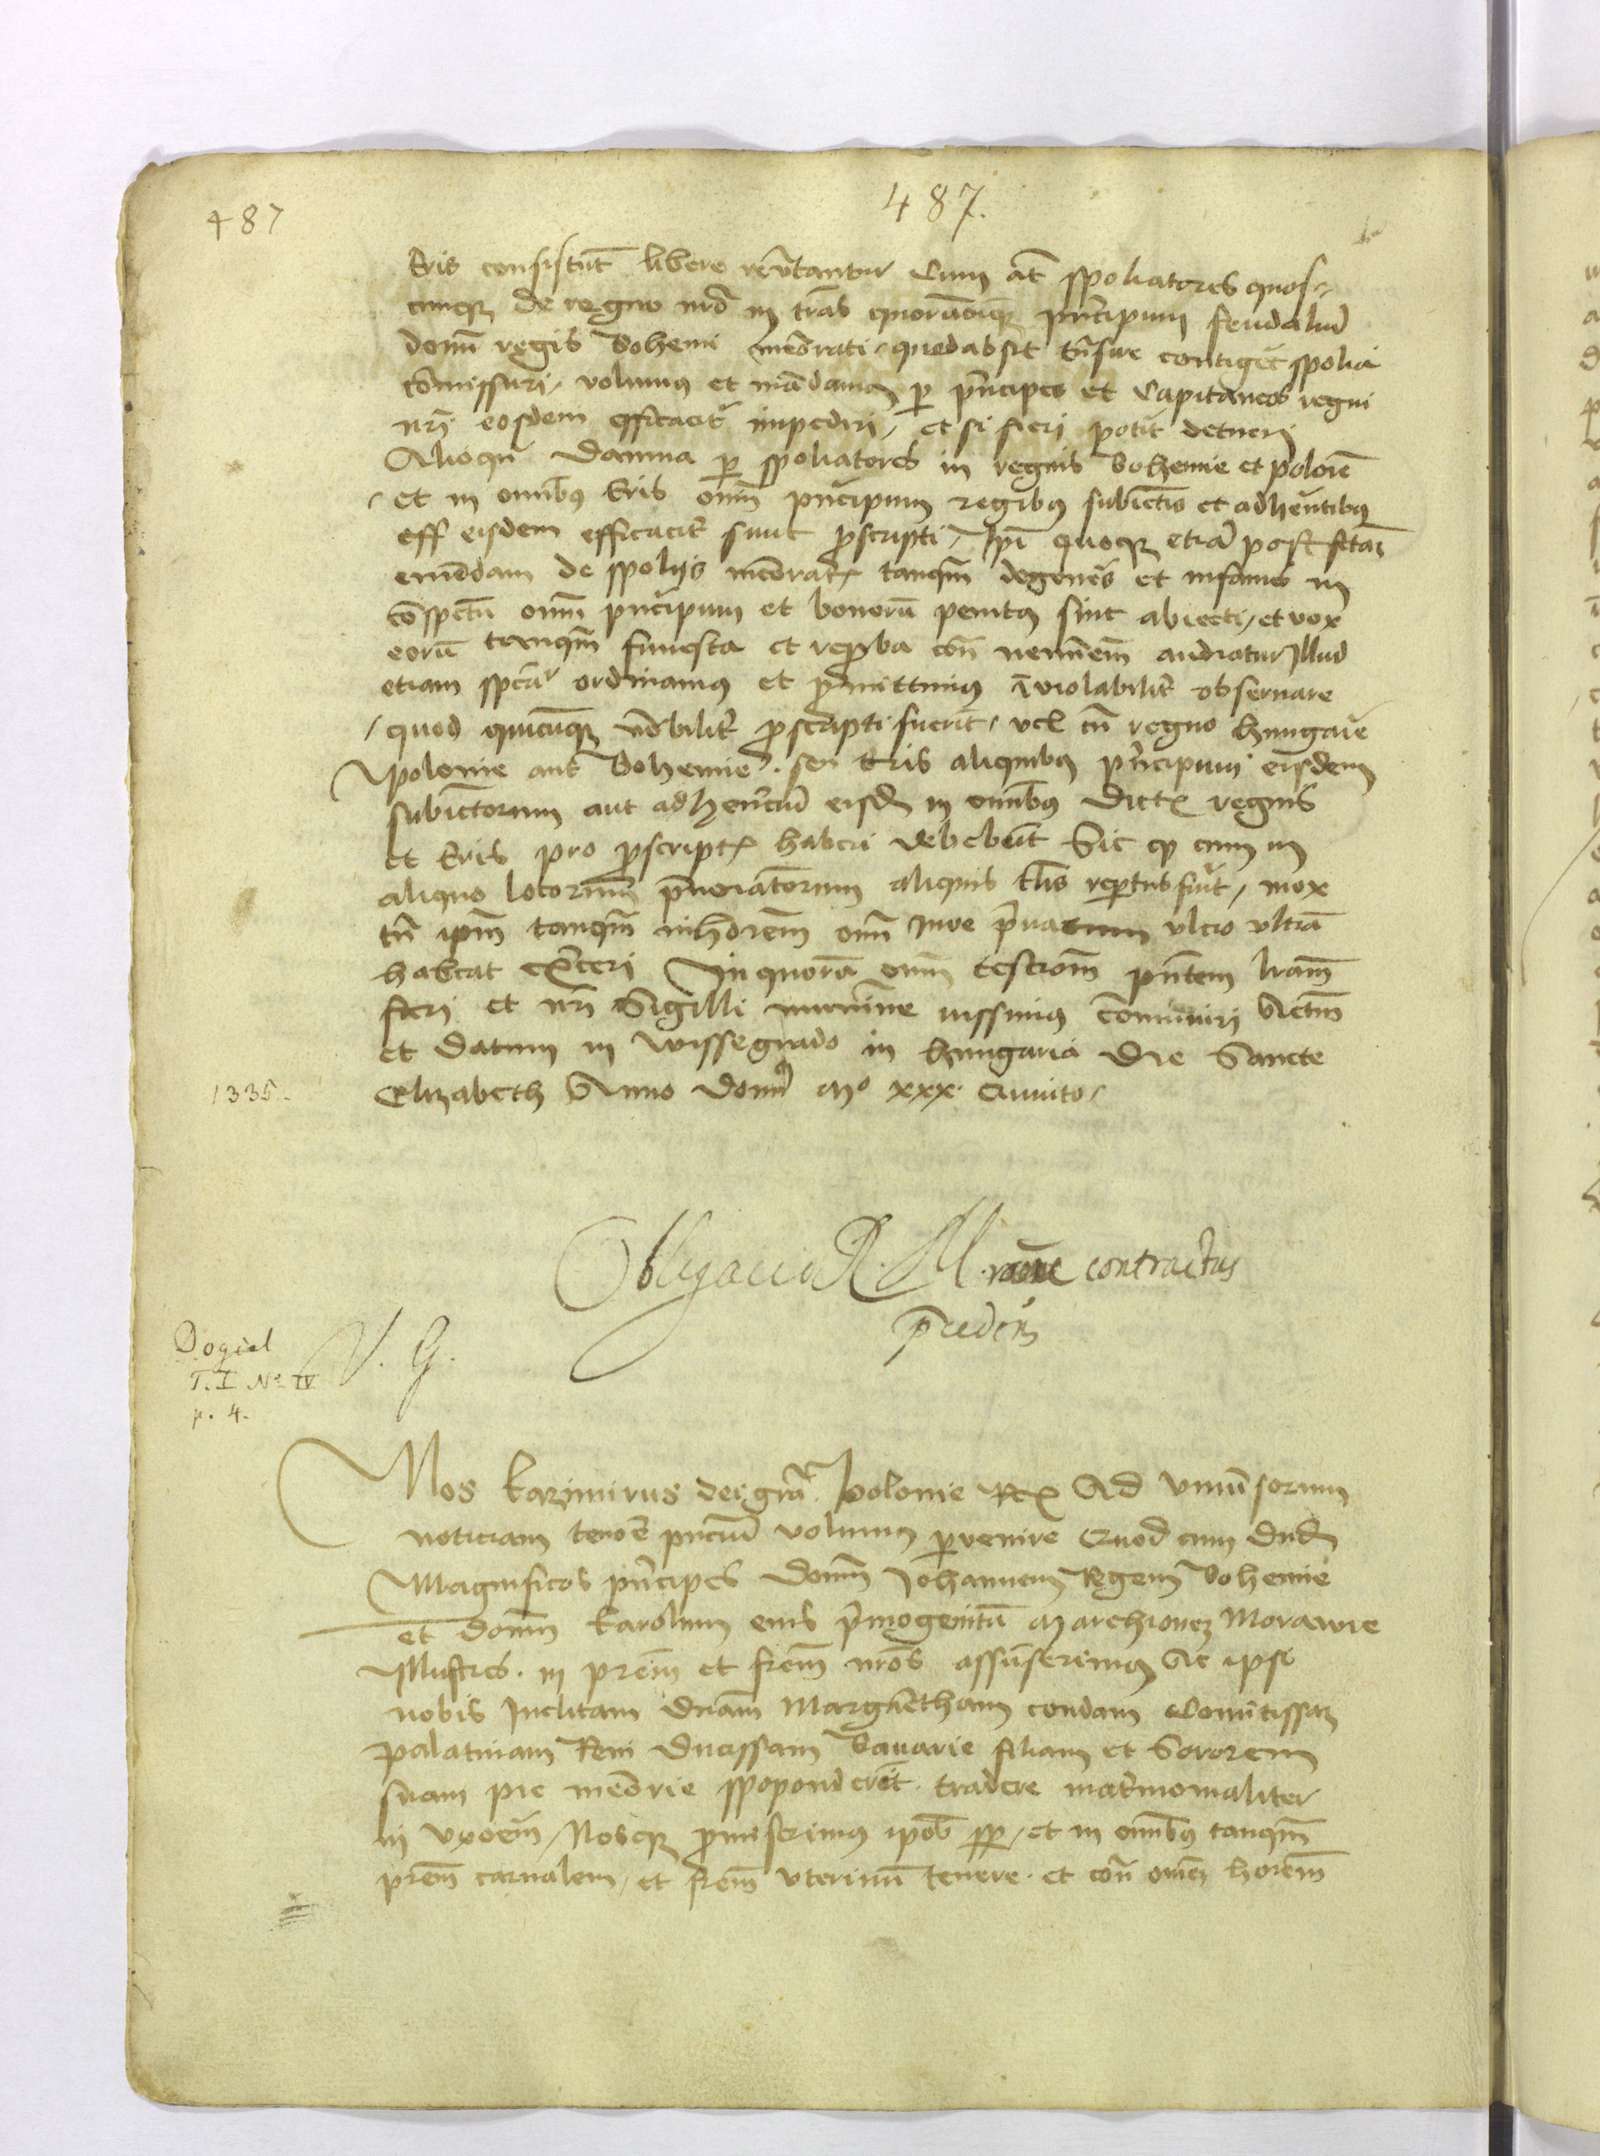 487
487.
tris consistut libere revtantur Cum at spoliatores quos¬
cuiqz de regno nro in tras quorucuqz principum feudaliu
domi regis Bohemi meorati quod absit tnsire contiget spolia
comissuri, volumus et madamus per principes et Capitaneos regni
nri eosdem efficacit impediri, et si fieri potit detineri
Alioqn damna per spoliatores in regnis bohemie et polonie
et in omibus tris oim principum regibus subiectis et adherentibus
eisdem efficacit sint proscripti, Ipi quoqz etia post
emedam de spolijs meoratis tanqm degeneres et infames in
cospectu oim principum et bonoru penitus sint abiecti, et vox
eoru tanqm funesta et reproba con neminem audiatur Illud
etiam spetiar ordinamus et promittimus inviolabilit observare
quod quicuqz proscripti fuerit, vel in regno hungarie
polonie aut bohemie, seu tris aliquibus principum eisdem
subiectorum aut adherenciu eisd in omibus dictis regnis
et tris pro proscriptis haberi debebut Sic qp cum in
aliquo locorum prenoiatorum aliquis talis repertus fuit, mox
ipm tanqm oim iure privatum
habeat Inquoru oim testiom pntem lram
fieri et nri Sigilli munimine iussimus comuniri Actum
et datum in wissegrado in hungaria die Sancte
1335.
Elizabeth Anno domi Mo xxx quinto
Obligacio R. M. raone contractus
precedens
Dogiel
T. I No IV
p. 4.
V. G.
Nos Kazimirus dei gra Polonie Rex Ad vniusorum
noticiam tenore pnciu volumus pervenire Quod cum dud
Magnificos principes domi Johannem Regem bohemie
et domi Karolum eius primogenitu Marchionez Moravie
Illustres in prem et frem nros assuserimus Ac ipsi
nobis Inclitam dnam Margaretham condam Comitissaz
palatinam Reni ducissam bavarie filiam et Sororem
suam pie meorie spoponderit tradere matrimonialiter
in vxorem, Nosqz promiserimus ipos semper, et in omibus tanqm
prem carnalem, et frem vterinu tenere et con omem horem